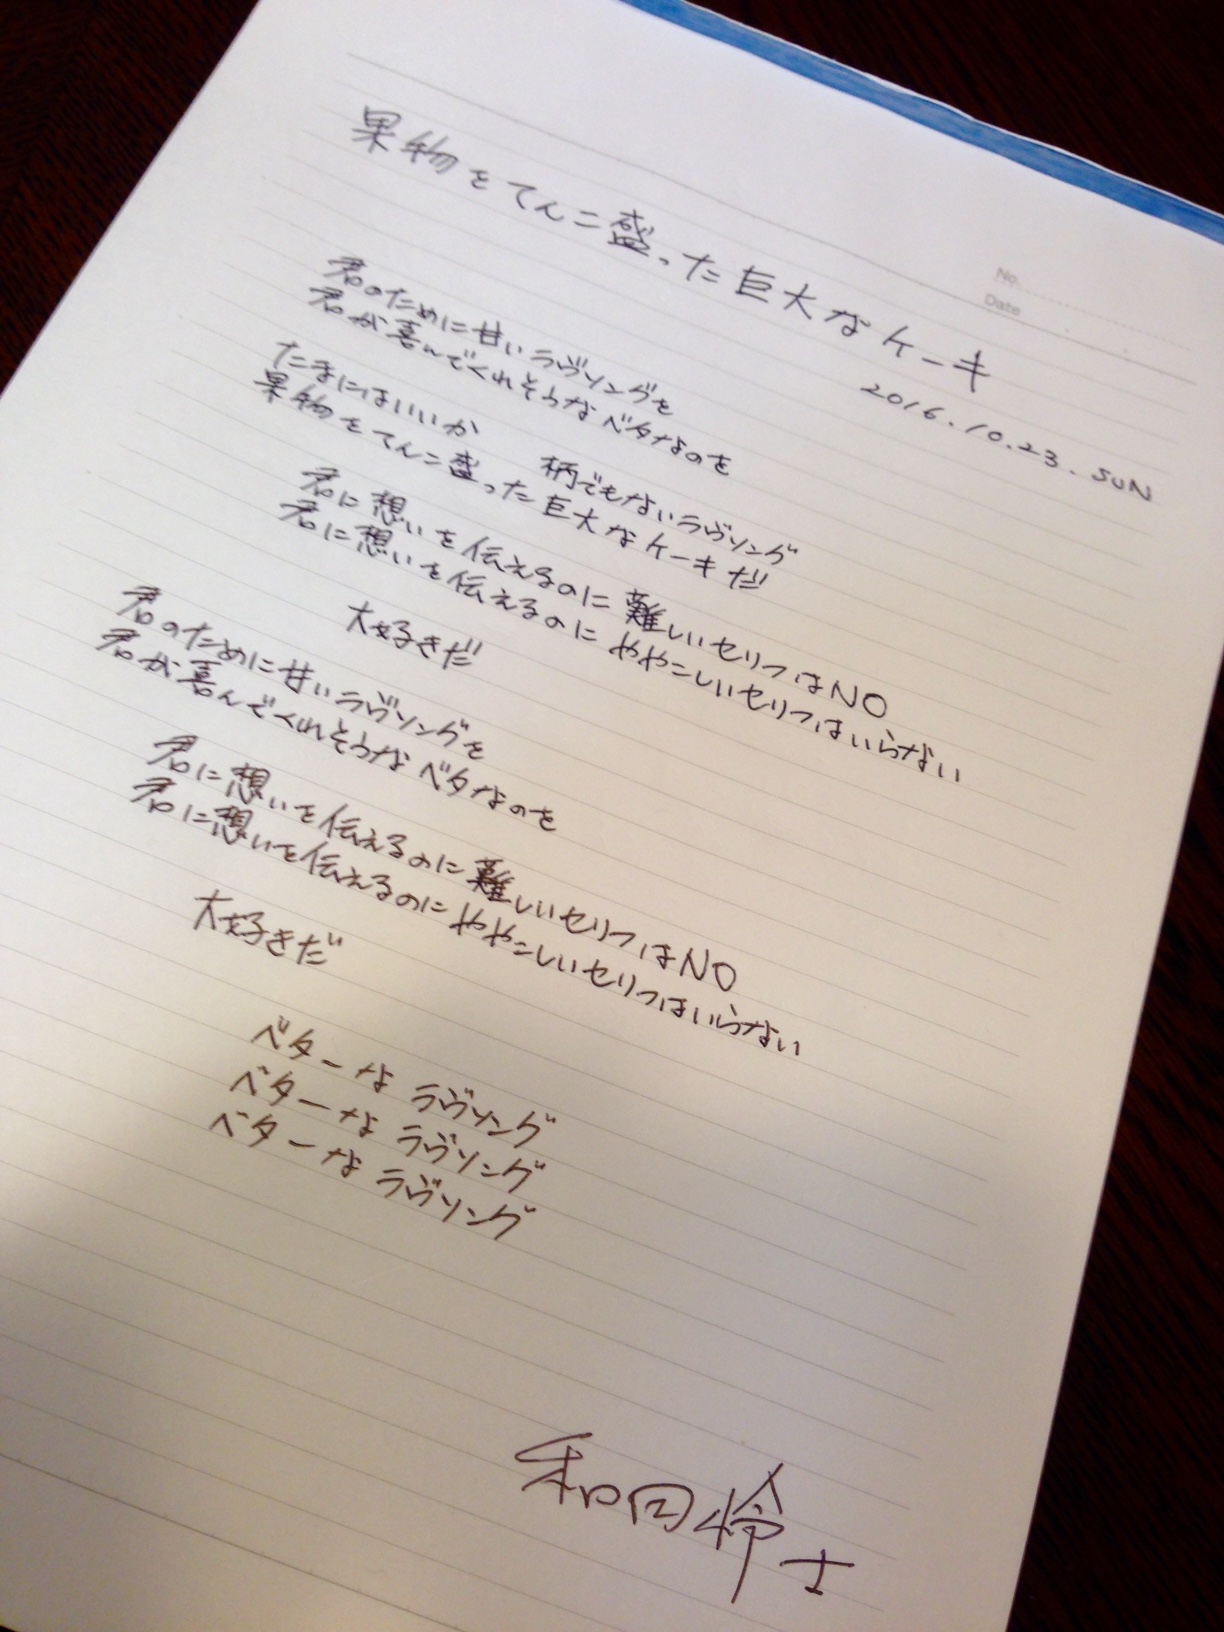 果物をてんこ盛った巨大なケーキ
No.
Date
2016.10.23.SUN
君のために甘いラヴソングを
君が喜んでくれそうなベタなのを
たまにはいいか 柄でもないラヴソング
果物をてんこ盛った巨大なケーキだ
君に想いを伝えるのに難しいセリフはNO
君に想いを伝えるのにややこしいセリフはいらない
大好きだ
君のために甘いラヴソングを
君が喜んでくれそうなベタなのを
君に想いを伝えるのに難しいセリフはNO
君に想いを伝えるのにややこしいセリフはいらない
大好きだ
ベターなラヴソング
ベターなラヴソング
ベターなラヴソング
和田怜士